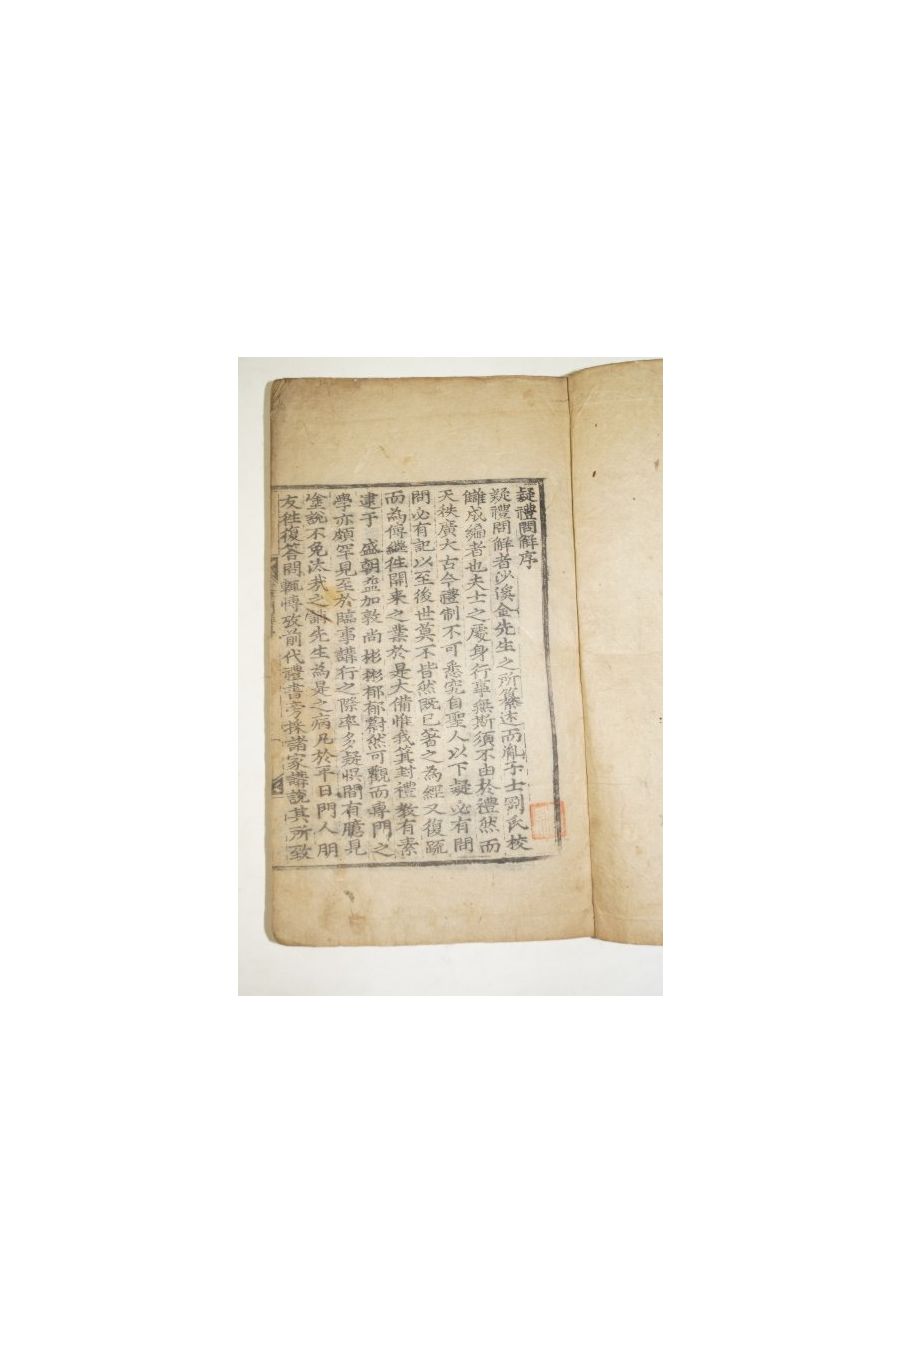 疑禮問解序
疑禮問解者沙溪金先生之所纂述而胤子士剛氏校
讎成編者也夫士之處身行事無斯須不由於禮然而
天秩廣大古今禮制不可悉究自聖人以下疑必有問
問必有記以至後世莫不皆然既已著之為經又復疏
而為傳繼往開來之業於是大備惟我箕封禮教有素
逮于 盛朝益加敦尚彬彬郁郁蔚然可觀而專門之
學亦頗罕見至於臨事講行之際率多疑悞間有臆見
佥說不免汰我之誚先生為是之病凡於平日門人朋
友徃復答問輒博攷前代禮書旁採諸家講說其所致